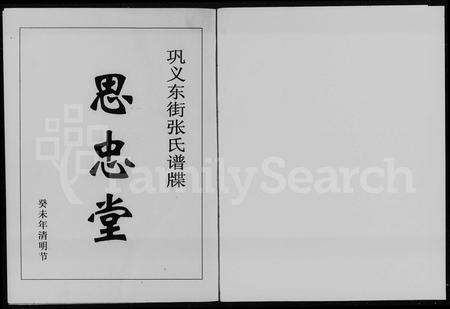 巩义东街张氏谱牒
思忠堂
癸未年清明节
FamilySearch